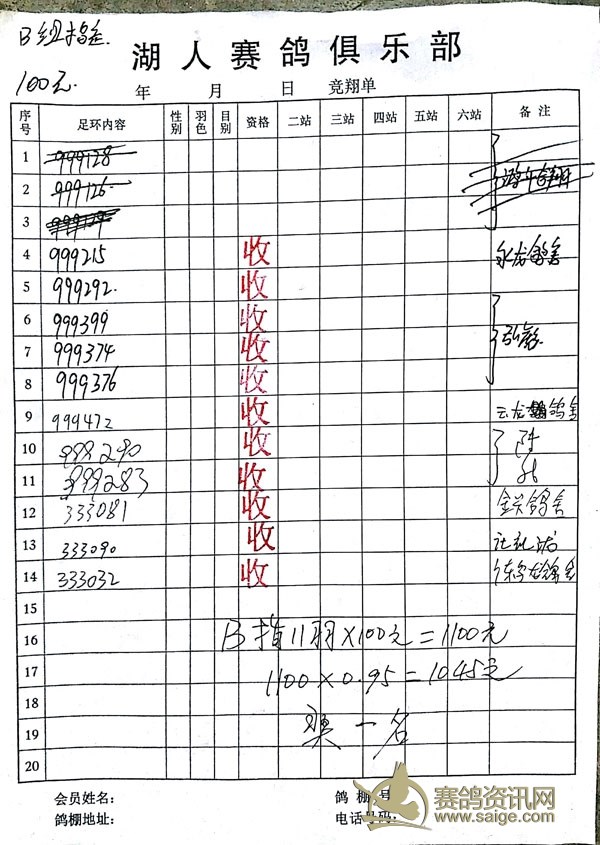 B组指定
湖人赛鸽俱乐部
100元.
年 月 日 竞翔单
序号 足环内容 性别 羽色 目别 资格 二站 三站 四站 五站 六站 备注
1 999128
2 999126
3
4 999215 收
5 999292. 收
6 999399 收
7 999374 收
8 999376 收
9 999472 收 云龙 鸽舍
10 998290 收
11 999283 收
12 333081 收 鸽舍
13 333090 收
14 333032 收
15
16 B指11羽×100元=1100元
17 1100×0.95=1045元
18
19 奖一名
20
会员姓名: 鸽棚 号
鸽棚地址: 电话号码:
赛鸽资讯网
www.saige.com